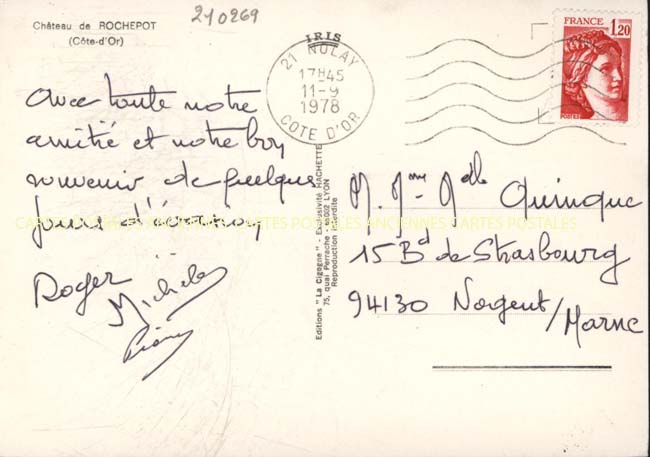 Château de ROCHEPOT
(Côte-d'Or)
210269
IRIS
21 NOLAY
17H45
11-9
1978
COTE D'OR
FRANCE
1,20
POSTES
Avec toute notre
amitié et notre bon
souvenir de quelques
jours d'évasion
Roger
Michèle
CARTES POSTALES ANCIENNES CARTES POSTALES ANCIENNES CARTES POSTALES
Editions "La Cigogne" - Exclusivité HACHETTE
75, quai Perrache - 69002 LYON
Reproduction interdite
M. Mme Mdlle Quinque
15 Bd de Strasbourg
94130 Nogent
/Marne